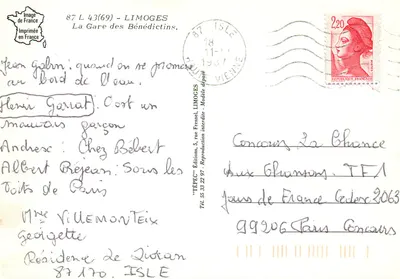 Image
de France
Imprimée
en France
87 L 43(69) - LIMOGES
La Gare des Bénédictins.
87 ISLE
18
11-
1987
VIENNE
2,20
REPUBLIQUE FRANCAISE
Jean Gabin: quand on se promène
au bord de l'eau.
Henri Garrat: C'est un
mauvais garçon
Andrex: Chez Bébert
Albert Préjean: Sous les
toits de Paris
Mme VILLEMONTEIX
Georgette
Résidence de
87170. ISLE
"TÉPEC" Éditions, 5, rue Fresnel, LIMOGES
Tél. 55 33 22 97 - Reproduction interdite - Modèle déposé
Concours La Chance
aux Chansons. TF1
Jours de France Cedex 2063
99206 Paris Concours